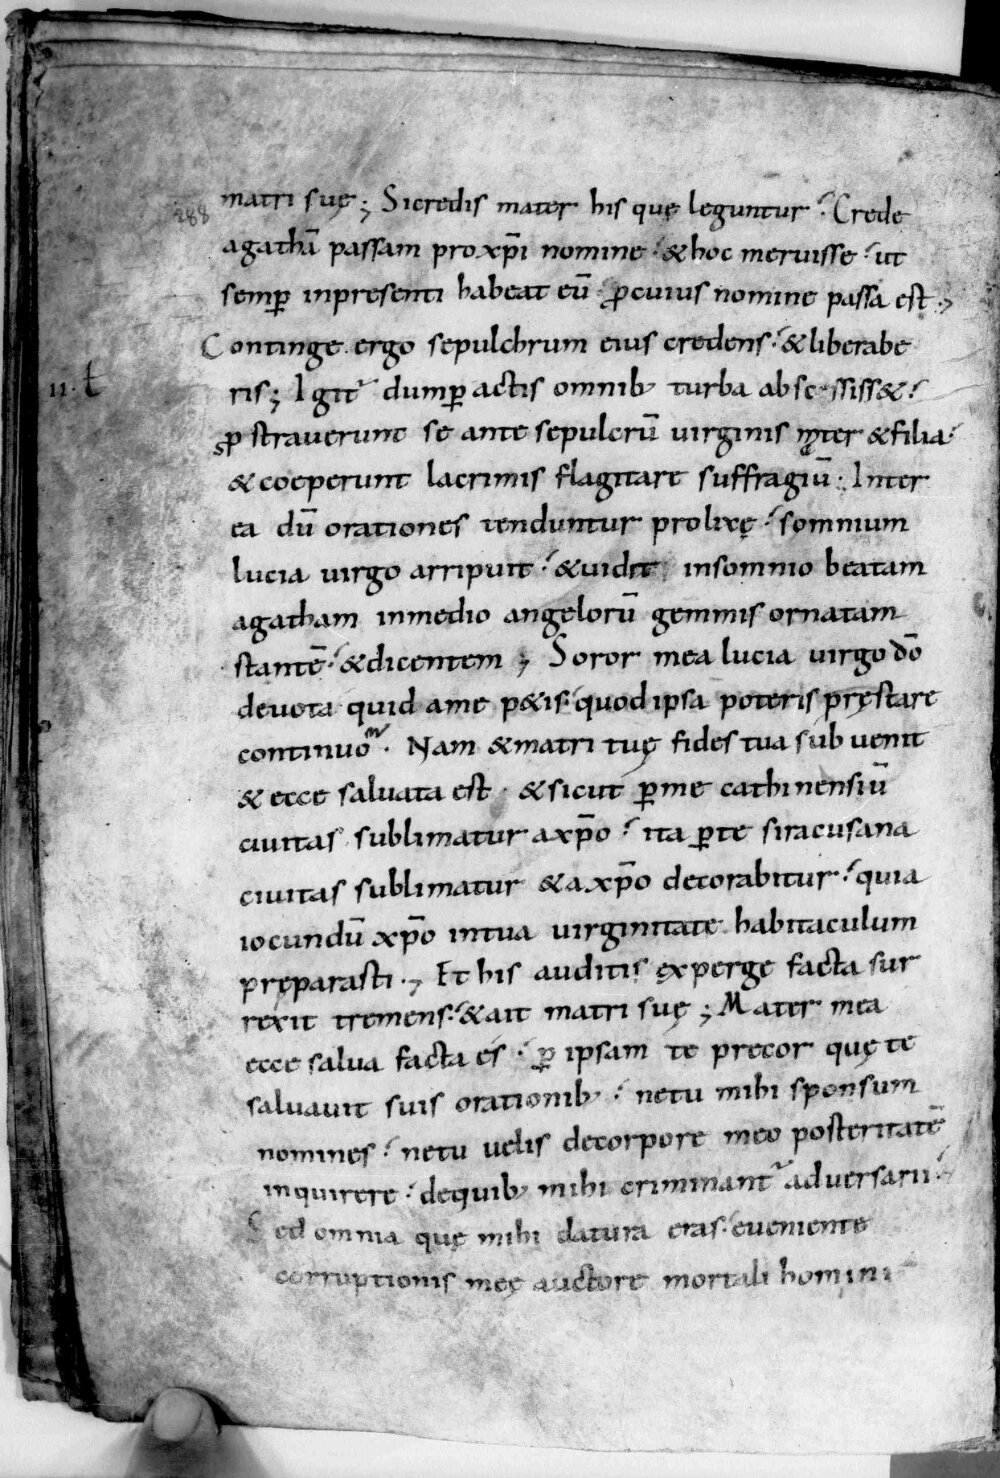 288
matri suę; Sicredis mater his quę leguntur. Crede
agathā passam pro xp̄i nomine. & hoc meruisse. ut
semꝑ inpresenti habeat eū. ꝓcuius nomine passa est.,
Continge ergo sepulchrum eius credens. & liberabe
II. t
ris; Igit᷑ dumꝑactis omnib; turba abscessiss&.
ꝓstraverunt se ante sepulcrū virginis mater & filia.
& coeperunt lacrimis flagitare suffragiū. Inter
ea dū orationes tenduntur prolixę. somnium
lucia virgo arripuit. & vidit insomnio beatam
agatham inmedio angelorū gemmis ornatam
stantē. & dicentem; Soror mea lucia virgo dō
devota quid ame p&is. quod ipsa poteris pręstare
continuo. Nam & matri tuę fides tua subvenit
& ecce salvata est. & sicut ꝑme cathinensiū
civitas sublimatur axp̄o. ita ꝑte siracusana
civitas sublimatur & axp̄o decorabitur. quia
iocundū xp̄o intua virginitate habitaculum
pręparasti., Et his auditis exꝑgefacta sur
rexit tremens. & ait matri suę; Mater mea
ecce salva facta es. ꝑ ipsam te precor quę te
salvavit suis orationib; netu mihi sponsum
nomines. netu velis decorpore meo posteritatē
inquirere. dequib; mihi criminant᷑ adversarii.
Sed omnia quę mihi datura eras. eveniente
corruptionis meę auctore mortali homini